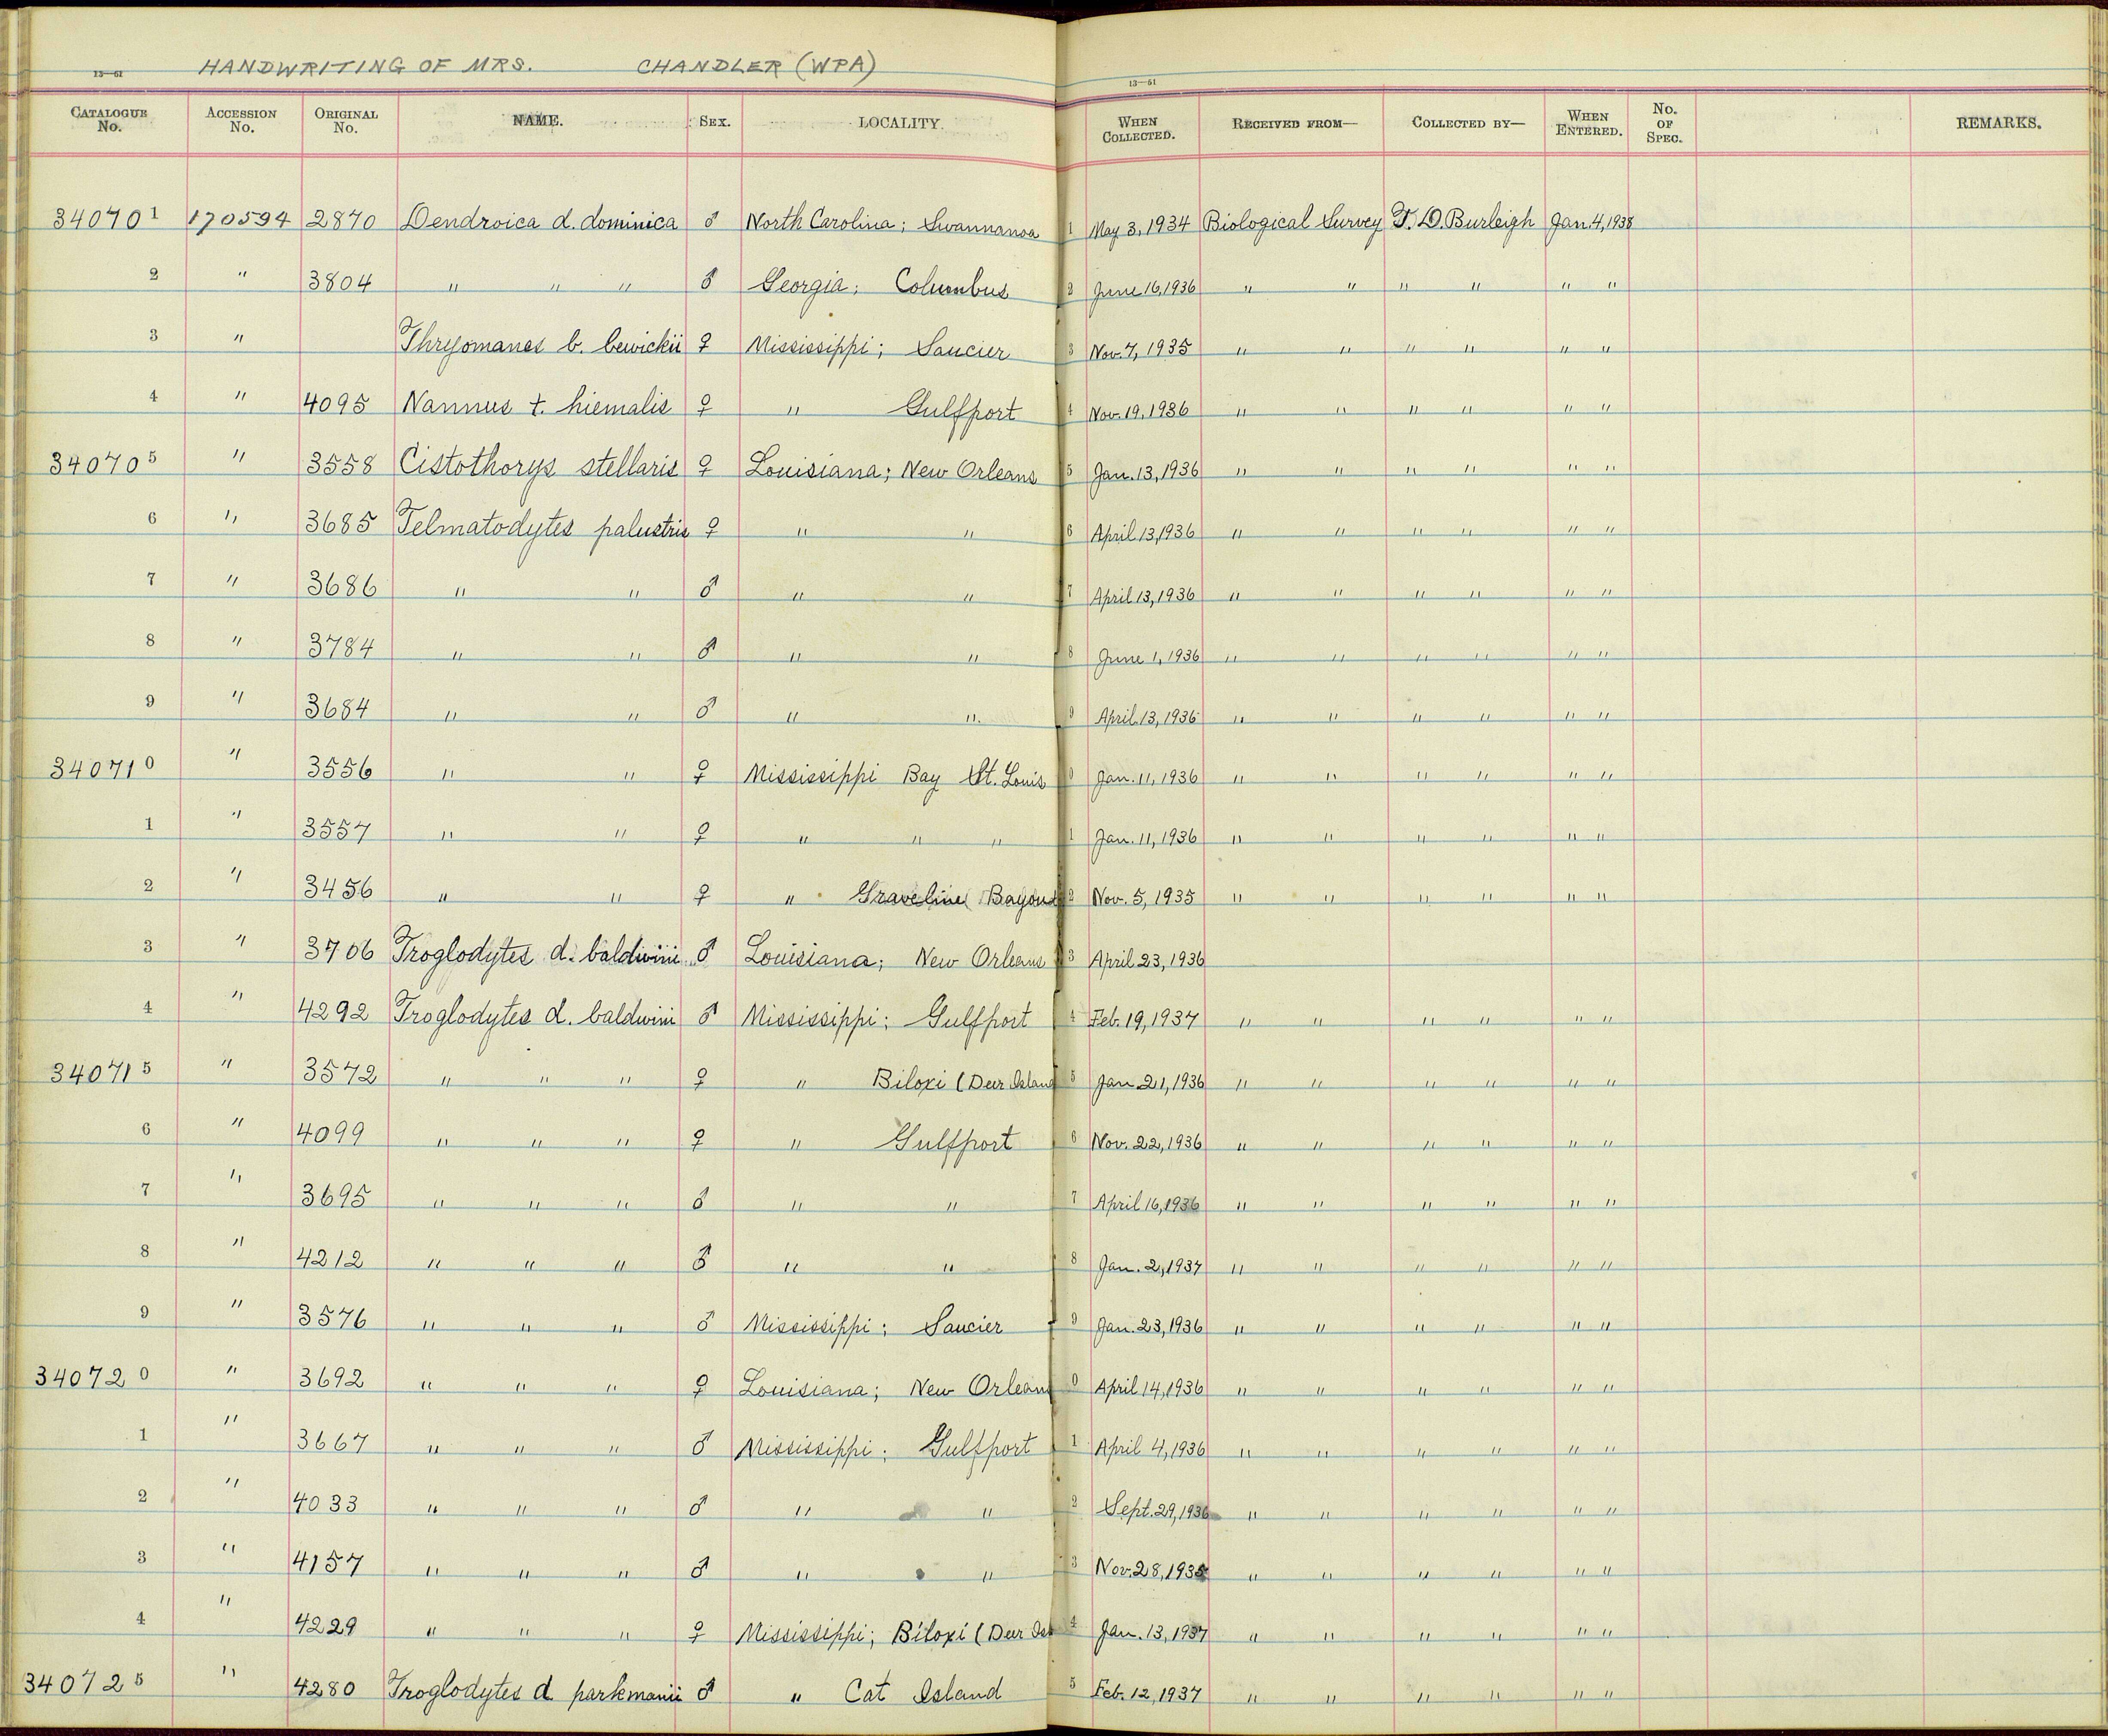 HANDWRITING OF MRS. CHANDLER (WPA)
13—61 13—61
CATALOGUE No. ACCESSION No. ORIGINAL No. NAME. SEX. LOCALITY. WHEN COLLECTED. RECEIVED FROM— COLLECTED BY— WHEN ENTERED. No. OF SPEC. REMARKS.
340701 170594 2870 Dendroica d. dominica ♂ North Carolina; Swannanoa 1 May 3, 1934 Biological Survey T. D. Burleigh Jan. 4, 1938
2 " 3804 " " " ♂ Georgia; Columbus 2 June 16, 1936 " " " " " "
3 " Thryomanes b. bewickii ♀ Mississippi; Saucier 3 Nov. 7, 1935 " " " " " "
4 " 4095 Nannus t. hiemalis ♀ " Gulfport 4 Nov. 19, 1936 " " " " " "
340705 " 3558 Cistothorys stellaris ♀ Louisiana; New Orleans 5 Jan. 13, 1936 " " " " " "
6 " 3685 Telmatodytes palustris ♀ " " 6 April 13, 1936 " " " " " "
7 " 3686 " " ♂ " " 7 April 13, 1936 " " " " " "
8 " 3784 " " ♂ " " 8 June 1, 1936 " " " " " "
9 " 3684 " " ♂ " " 9 April 13, 1936 " " " " " "
340710 " 3556 " " ♀ Mississippi Bay St. Louis 0 Jan. 11, 1936 " " " " " "
1 " 3557 " " ♀ " " " 1 Jan. 11, 1936 " " " " " "
2 " 3456 " " ♀ " Graveline Bayou 2 Nov. 5, 1935 " " " " " "
3 " 3706 Troglodytes d. baldwini ♂ Louisiana; New Orleans 3 April 23, 1936
4 " 4292 Troglodytes d. baldwini ♂ Mississippi; Gulfport 4 Feb. 19, 1937 " " " " " "
340715 " 3572 " " " ♀ " Biloxi (Deer Island 5 Jan 21, 1936 " " " " " "
6 " 4099 " " " ♀ " Gulfport 6 Nov. 22, 1936 " " " " " "
7 " 3695 " " " ♂ " " 7 April 16, 1936 " " " " " "
8 " 4212 " " " ♂ " " 8 Jan. 2, 1937 " " " " " "
9 " 3576 " " " ♂ Mississippi; Saucier 9 Jan. 23, 1936 " " " " " "
340720 " 3692 " " " ♀ Louisiana; New Orleans 0 April 14, 1936 " " " " " "
1 " 3667 " " " ♂ Mississippi; Gulfport 1 April 4, 1936 " " " " " "
2 " 4033 " " " ♂ " " 2 Sept. 29, 1936 " " " " " "
3 " 4157 " " " ♂ " " 3 Nov. 28, " " " " " "
4 " 4229 " " " ♀ Mississippi; Biloxi (Deer Isl 4 Jan. 13, 1937 " " " " " "
340725 " 4280 Troglodytes d parkmanii ♂ " Cat Island 5 Feb. 12, 1937 " " " " " "